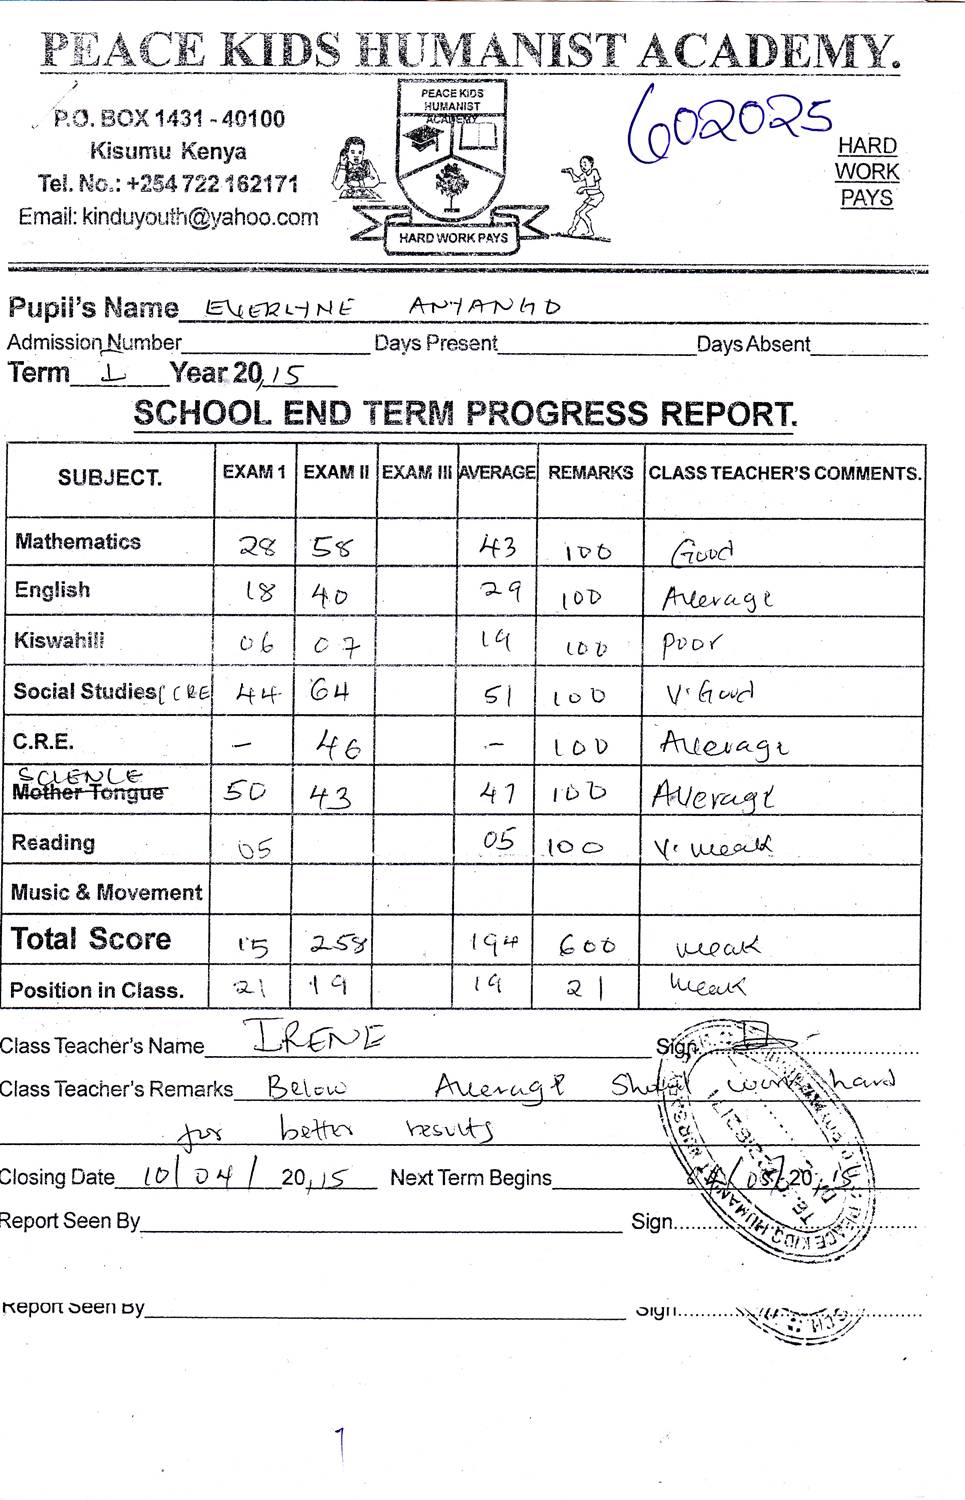 PEACE KIDS HUMANIST ACADEMY.
P.O. BOX 1431 - 40100
Kisumu Kenya
Tel. No.: +254 722 162171
Email: kinduyouth@yahoo.com
PEACE KIDS
HUMANIST
ACADEMY
HARD WORK PAYS
602025
HARD
WORK
PAYS
Pupil's Name EVERLYNE ANYANGO
Admission Number Days Present Days Absent
Term I Year 20,15
SCHOOL END TERM PROGRESS REPORT.
SUBJECT. EXAM 1 EXAM II EXAM III AVERAGE REMARKS CLASS TEACHER'S COMMENTS.
Mathematics 28 58 43 100 Good
English 18 40 29 100 Average
Kiswahili 06 07 19 100 Poor
Social Studies (CRE 44 64 51 100 V. Good
C.R.E. - 46 - 100 Average
SCIENCE
Mother Tongue 50 43 47 100 Average
Reading 05 05 100 V. weak
Music & Movement
Total Score 15 258 194 600 weak
Position in Class. 21 19 19 21 weak
Class Teacher's Name IRENE Sign
Class Teacher's Remarks Below Average Should work hard
for better results
Closing Date 10/04/ 2015 Next Term Begins /05/2015
Report Seen By Sign
PEACE KIDS HUMANIST
Report Seen By Sign
1